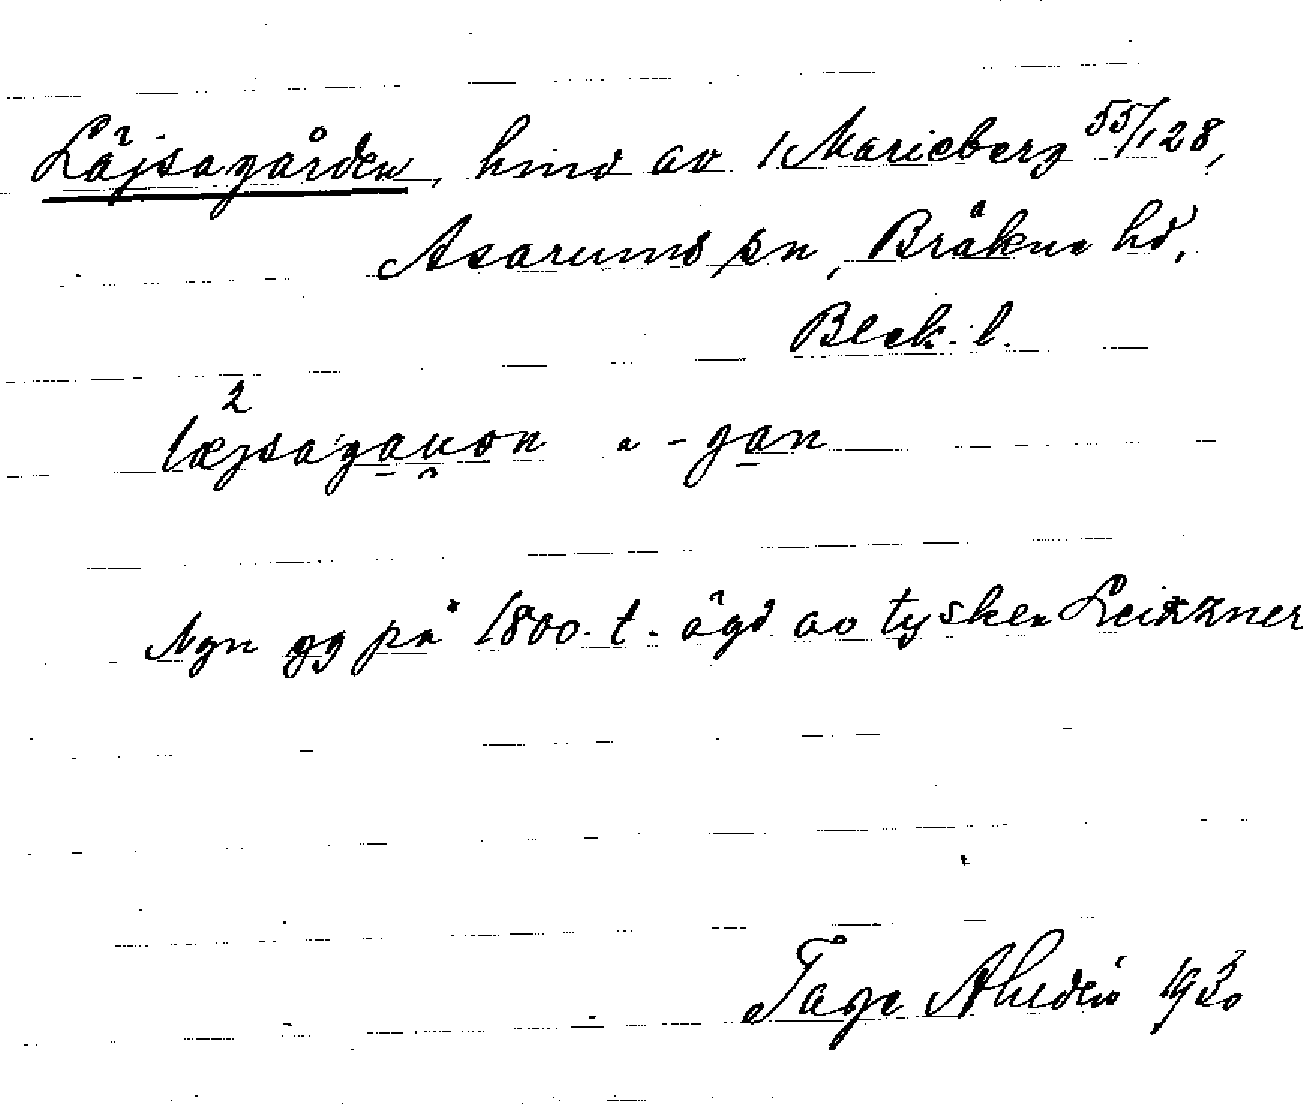 Läjsagården, hmd av 1 Marieberg 55/128,
Asarums sn, Bräkne hd,
Blek. l.
2
læjsagauon " -gan
Ngn gg på 1800-t. ägd av tysken Leitzner
Tage Ahldén 1930